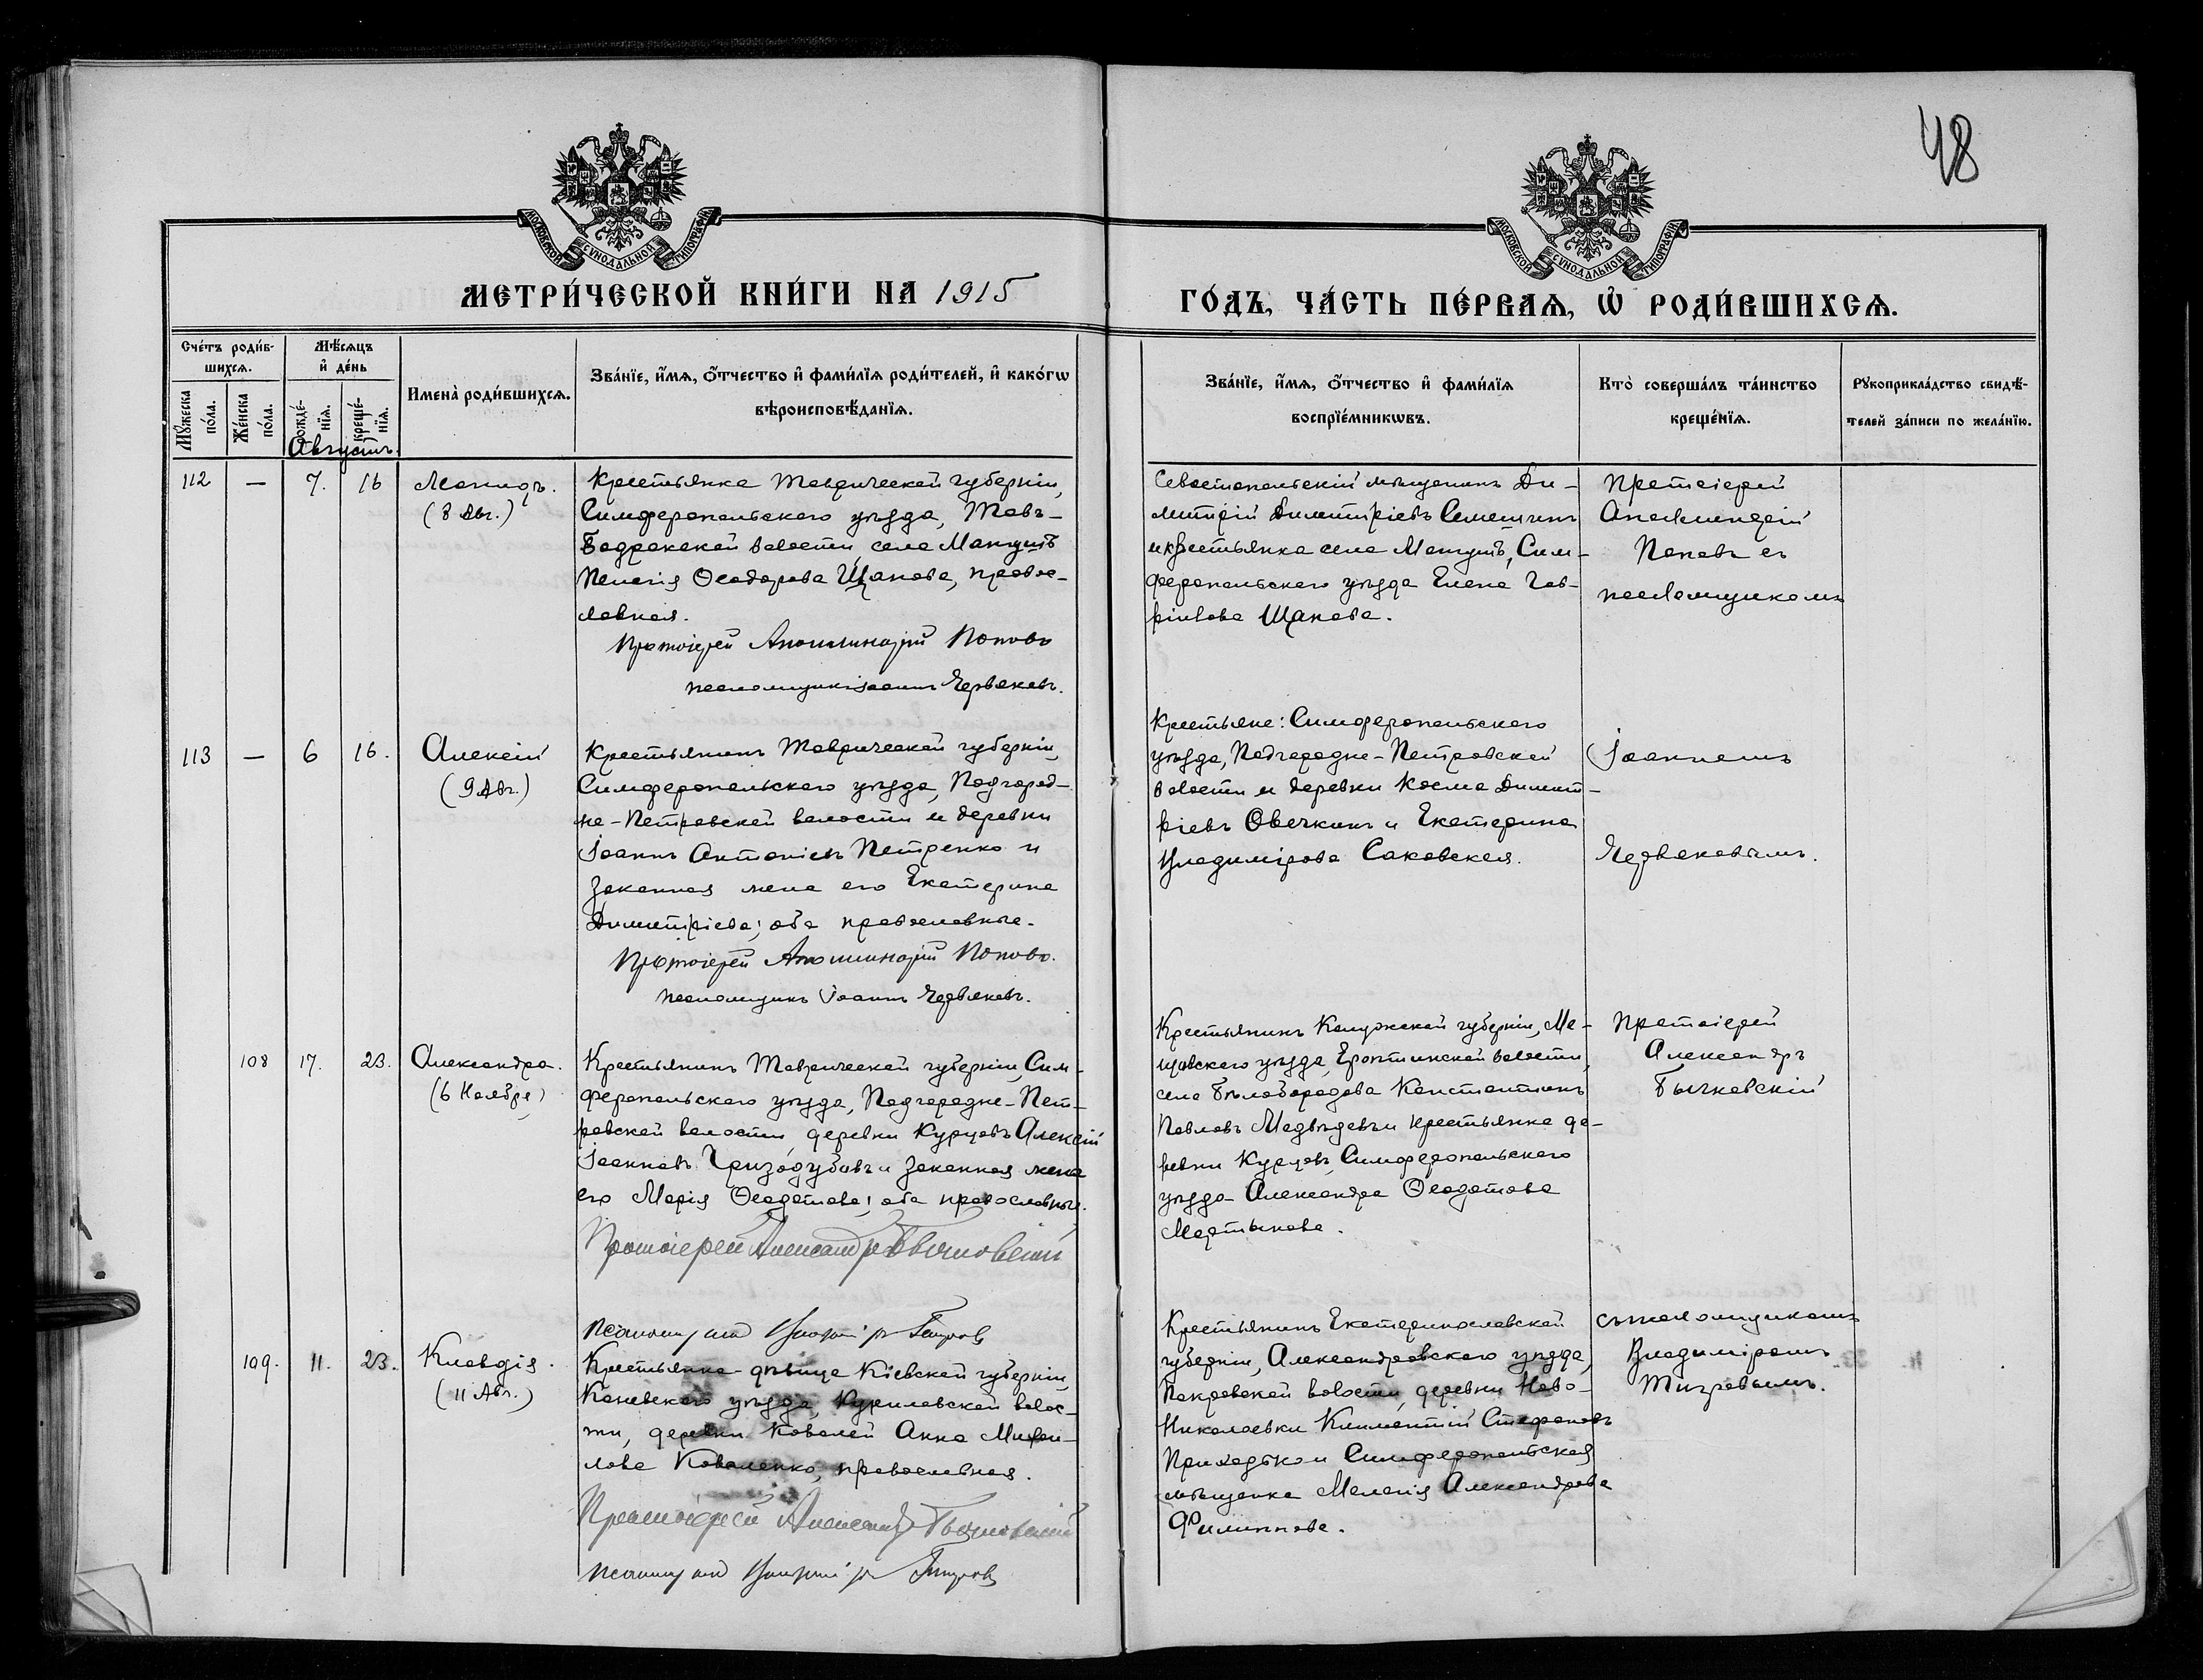 48
МОСКОВСКОЙ СѴНОДАЛЬНОЙ ТИПОГРАФІИ
МОСКОВСКОЙ СѴНОДАЛЬНОЙ ТИПОГРАФІИ
МЕТРИ́ЧЕСКОЙ КНИ́ГИ НА 1915
ГО́ДЪ, ЧА́СТЬ ПЕ́РВАѦ, Ѡ҆ РОДИ́ВШИХСѦ.
Сче́тъ роди́в-
шихсѧ.
Мꙋ́жеска по́ла.
Же́нска по́ла.
Мѣ́сѧцъ
и҆ де́нь
рожде́-
нїѧ.
креще́-
нїѧ.
Августъ.
Имена̀ роди́вшихсѧ.
Зва́нїе, и҆́мѧ, ѻ҆́тчество и҆ фами́лїѧ роди́телей, и҆ како́гѡ
вѣроисповѣ́данїѧ.
Зва́нїе, и҆́мѧ, ѻ҆́тчество и҆ фами́лїѧ
воспрїе́мникѡвъ.
Кто̀ соверша́лъ та́инство
креще́нїѧ.
Рꙋкоприкла́дство свидѣ́-
телей за́писи по жела́нїю.
112
—
7.
16
Леонидъ.
(8 Авг.)
Крестьянка Таврической губерніи,
Симферопольскаго уѣзда, Тавъ-
Бадракской волости, села Мангушъ
Пелагія Ѳеодорова Щапова, правос-
лавная.
Протоіерей Аполлинарій Поповъ
псаломщикъ Іоаннъ Червяковъ.
Севастопольскій мѣщанинъ Ди-
митрій Димитріевъ
и крестьянка села Мангушъ, Сим-
феропольскаго уѣзда Елена Гав-
ріилова Щапова.
Протоіерей
Аполлинарій
Поповъ съ
псаломщикомъ
113
—
6
16.
Алексій
(9 Авг.)
Крестьянинъ Таврической губерніи,
Симферопольскаго уѣзда, Подгород-
не-Петровской волости и деревни
Іоаннъ Антоніевъ Петренко и
законная жена его Екатерина
Димитріева; оба православные.
Протоіерей Аполлинарій Поповъ.
псаломщикъ Іоаннъ Червяковъ.
Крестьяне: Симферопольскаго
уѣзда, Подгородне-Петровской
волости и деревни Косма Димит-
ріевъ Овечкинъ и Екатерина
Владимірова Саковская.
Іоанномъ
Червяковымъ.
108
17.
23.
Александра.
(6 Ноября)
Крестьянинъ Таврической губерніи, Сим-
феропольскаго уѣзда, Подгородне-Пет-
ровской волости, деревни Курцовъ Алексій
Іоанновъ Гризодубовъ и законная жена
его Марія Ѳеодотова; оба православные.
Протоіерей Александръ Бычковскій
Псаломщикъ Владиміръ Тигровъ
Крестьянинъ Калужской губерніи, Ме-
щовскаго уѣзда, волости,
села Бѣлобородова Константинъ
Павловъ Медвѣдевъ и крестьянка де-
ревни Курцовъ, Симферопольскаго
уѣзда Александра Ѳеодотова
Мартынова.
Протоіерей
Александръ
Бычковскій
109.
11.
23.
Клавдія.
(11 Авг.)
Крестьянка-дѣвица Кіевской губерніи,
Каневскаго уѣзда, Куриловской волос-
ти, деревни Ковалей Анна Михаи-
лова Коваленко, православная.
Протоіерей Александръ Бычковскій
Псаломщикъ Владиміръ Тигровъ
Крестьянинъ Екатеринославской
губерніи, Александровскаго уѣзда,
Покровской волости, деревни Ново-
Николаевки Климентій Стефановъ
Приходько и Симферопольская
мѣщанка Мелагія Александрова
Филиппова.
съ псаломщикомъ
Владиміромъ
Тигровымъ.